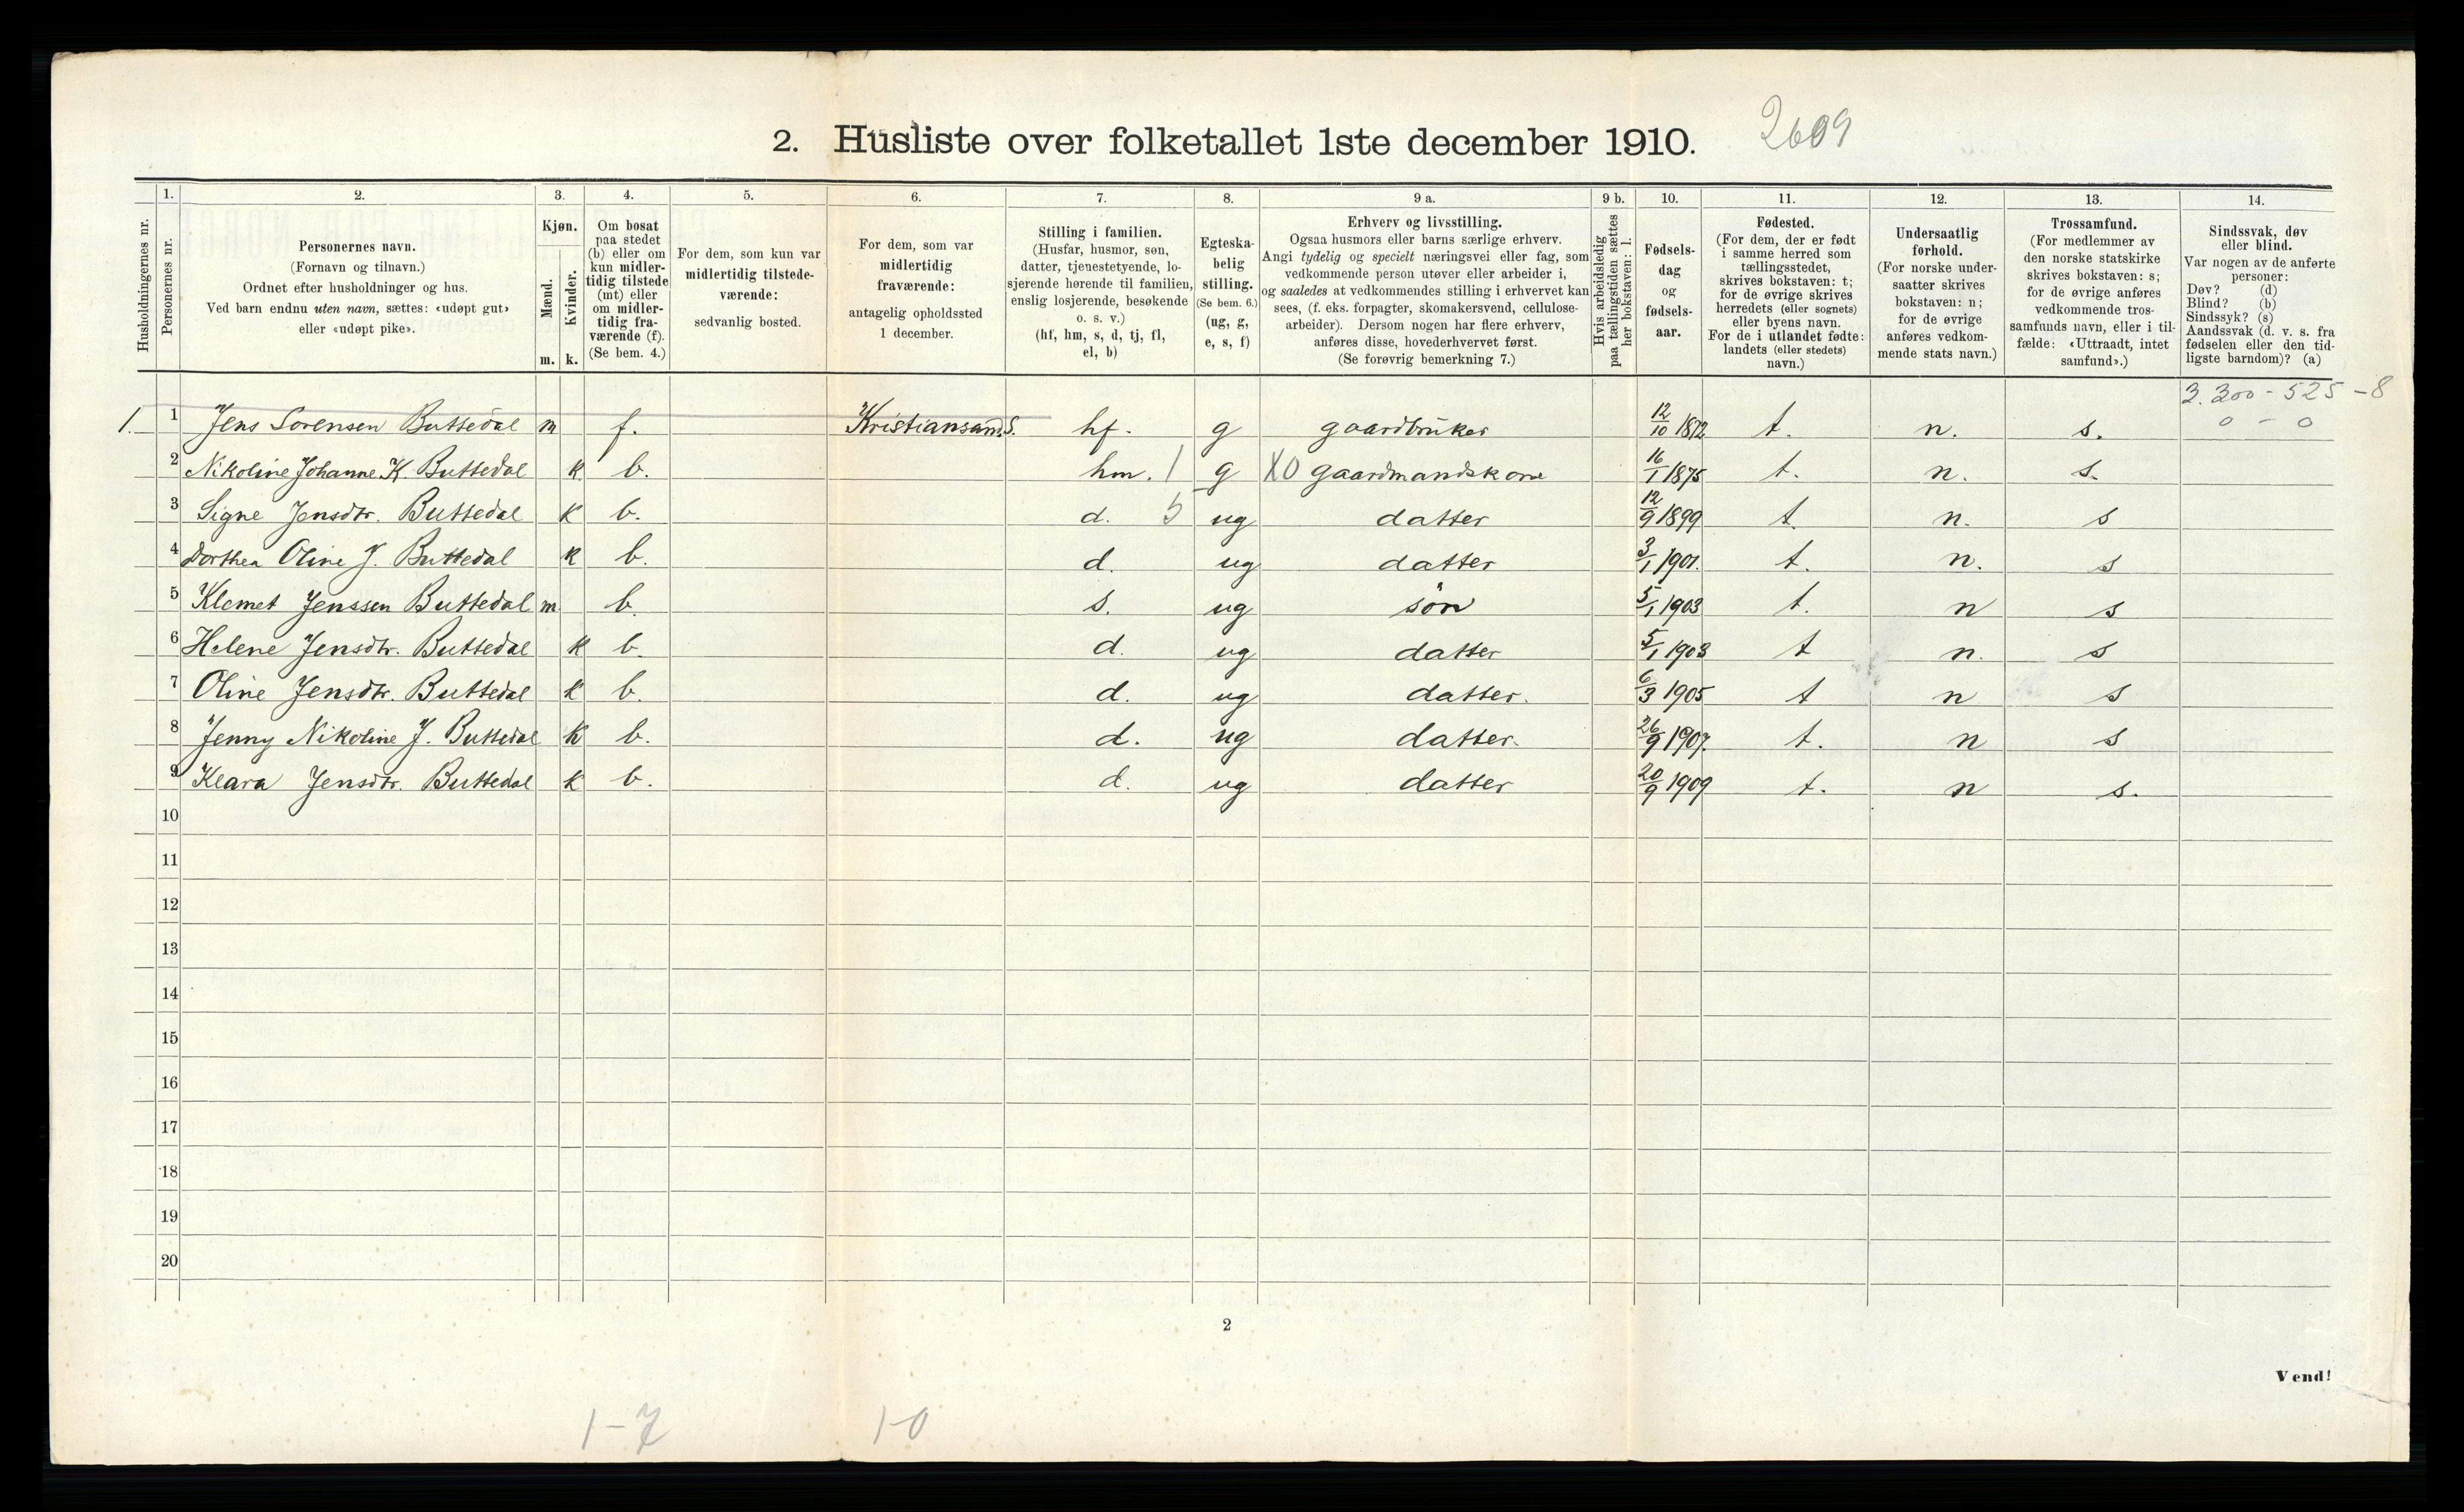 2. Husliste over folketallet 1ste december 1910. 2609
Husholdningernes nr.
1. Personernes nr.
2. Personernes navn.
(Fornavn og tilnavn.)
Ordnet efter husholdninger og hus.
Ved barn endnu uten navn, sættes: «udøpt gut»
eller «udøpt pike».
3. Kjøn.
Mænd. Kvinder.
m. k.
4. Om bosat
paa stedet
(b) eller om
kun midler-
tidig tilstede
(mt) eller
om midler-
tidig fra-
værende (f).
(Se bem. 4.)
5. For dem, som kun var
midlertidig tilstede-
værende:
sedvanlig bosted.
6. For dem, som var
midlertidig
fraværende:
antagelig opholdssted
1 december.
7. Stilling i familien.
(Husfar, husmor, søn,
datter, tjenestetyende, lo-
sjerende hørende til familien,
enslig losjerende, besøkende
o. s. v.)
(hf, hm, s, d, tj, fl,
el, b)
8. Egteska-
belig
stilling.
(Se bem. 6.)
(ug, g,
e, s, f)
9 a. Erhverv og livsstilling.
Ogsaa husmors eller barns særlige erhverv.
Angi tydelig og specielt næringsvei eller fag, som
vedkommende person utøver eller arbeider i,
og saaledes at vedkommendes stilling i erhvervet kan
sees, (f. eks. forpagter, skomakersvend, cellulose-
arbeider). Dersom nogen har flere erhverv,
anføres disse, hovederhvervet først.
(Se forøvrig bemerkning 7.)
9 b. Hvis arbeidsledig
paa tællingstiden sættes
her bokstaven: l.
10. Fødsels-
dag
og
fødsels-
aar.
11. Fødested.
(For dem, der er født
i samme herred som
tællingsstedet,
skrives bokstaven: t;
for de øvrige skrives
herredets (eller sognets)
eller byens navn.
For de i utlandet fødte:
landets (eller stedets)
navn.)
12. Undersaatlig
forhold.
(For norske under-
saatter skrives
bokstaven: n;
for de øvrige
anføres vedkom-
mende stats navn.)
13. Trossamfund.
(For medlemmer av
den norske statskirke
skrives bokstaven: s;
for de øvrige anføres
vedkommende tros-
samfunds navn, eller i til-
fælde: «Uttraadt, intet
samfund».)
14. Sindssvak, døv
eller blind.
Var nogen av de anførte
personer:
Døv? (d)
Blind? (b)
Sindssyk? (s)
Aandssvak (d. v. s. fra
fødselen eller den tid-
ligste barndom)? (a)
3.300 - 525 - 8
0 - 0
1. 1 Jens Sørensen Buttedal m f. Kristiansand S. hf. g gaardbruker 12/10 1872 t. n. s.
2 Nikoline Johanne K. Buttedal k. b. hm. 1 g X0 gaardmandskone 16/1 1875 t. n. s.
3 Signe Jensdtr. Buttedal k b. d. 5 ug datter 12/9 1899 t. n. s
4 Dorthea Oline J. Buttedal k b. d. ug datter 3/1 1901. t. n. s
5 Klemet Jenssen Buttedal m b. s. ug søn 5/1 1903 t. n s
6 Helene Jensdtr. Buttedal k b. d. ug datter 5/1 1903 t n. s
7 Oline Jensdtr. Buttedal k b. d. ug datter. 6/3 1905 t n s
8 Jenny Nikoline J. Buttedal k b. d. ug datter. 26/9 1907. t. n s
9 Klara Jensdtr. Buttedal k b. d. ug datter 20/9 1909 t. n s.
10
11
12
13
14
15
16
17
18
19
20
2
Vend!
1-7 1-0